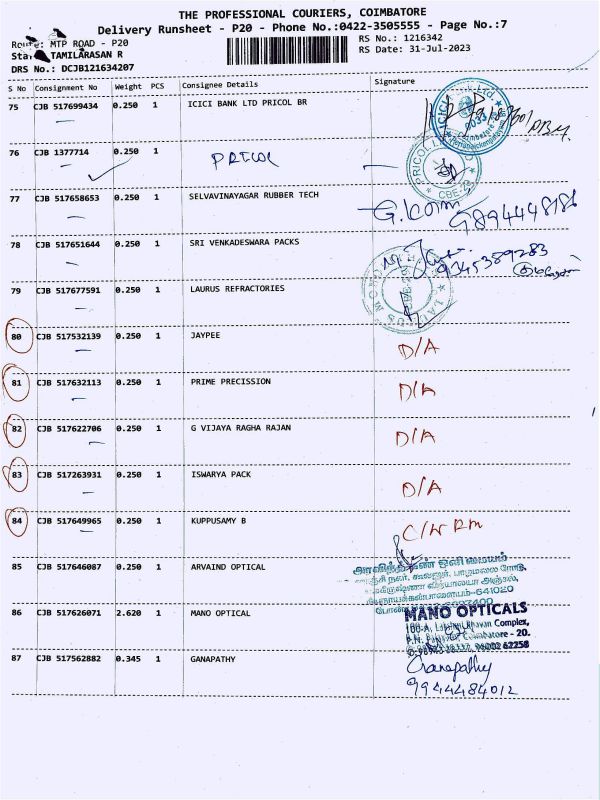 THE PROFESSIONAL COURIERS, COIMBATORE
Delivery Runsheet - P20 - Phone No.:0422-3505555 - Page No.:7
Route: MTP ROAD - P20
RS No.: 1216342
TAMILARASAN R
RS Date: 31-Jul-2023
DRS No.: DCJB121634207
S No Consignment No Weight PCS Consignee Details Signature
75 CJB 517699434 0.250 1 ICICI BANK LTD PRICOL BR
76 CJB 1377714 0.250 1 PRICOL
77 CJB 517658653 0.250 1 SELVAVINAYAGAR RUBBER TECH
9894448186
78 CJB 517651644 0.250 1 SRI VENKADESWARA PACKS
9345389283
79 CJB 517677591 0.250 1 LAURUS REFRACTORIES
80 CJB 517532139 0.250 1 JAYPEE D/A
81 CJB 517632113 0.250 1 PRIME PRECISSION D/A
82 CJB 517622706 0.250 1 G VIJAYA RAGHA RAJAN D/A
83 CJB 517263931 0.250 1 ISWARYA PACK D/A
84 CJB 517649965 0.250 1 KUPPUSAMY B
85 CJB 517646087 0.250 1 ARVAIND OPTICAL
86 CJB 517626071 2.620 1 MANO OPTICAL
MANO OPTICALS
Complex,
Coimbatore - 20.
96002 62258
87 CJB 517562882 0.345 1 GANAPATHY
Ganapathy
9944484012